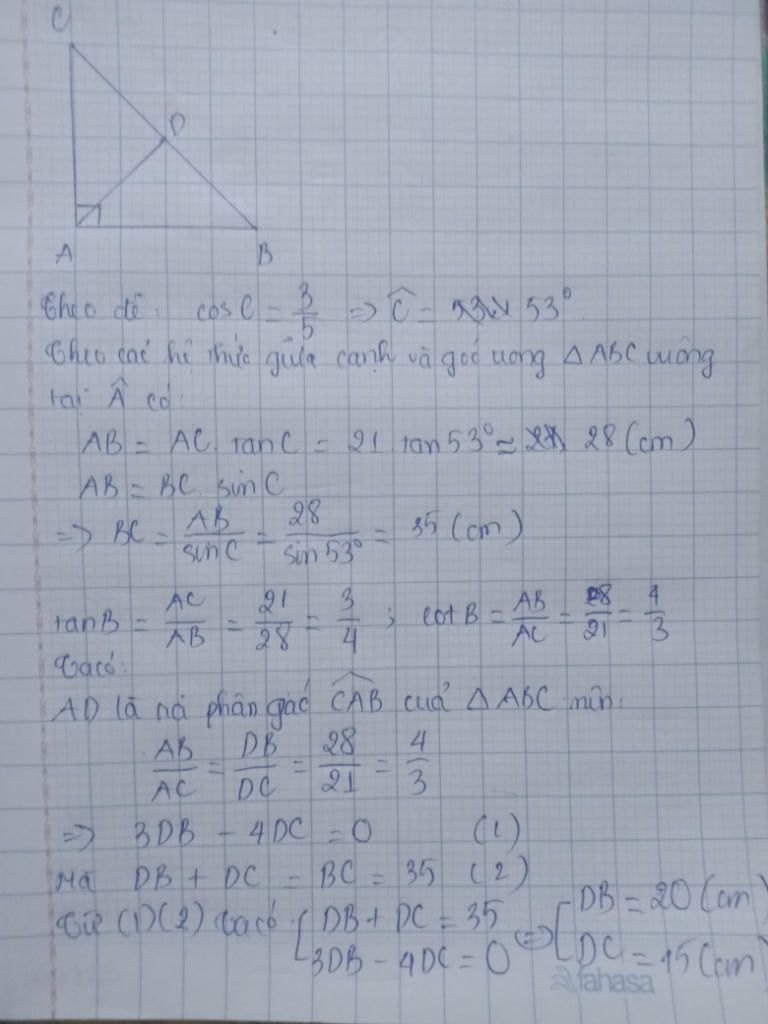 C
D
A
B
Theo đề: cos C = 3/5 => Ĉ = 53°
Theo các hệ thức giữa cạnh và góc trong △ ABC vuông
tại Â có:
AB = AC. tan C = 21 tan 53° ≈ 28 (cm)
AB = BC. sin C
=> BC = AB/sin C = 28/sin 53° = 35 (cm)
tan B = AC/AB = 21/28 = 3/4 ; cot B = AB/AC = 28/21 = 4/3
Ta có:
AD là phân giác CAB của △ ABC nên:
AB/AC = DB/DC = 28/21 = 4/3
=> 3DB - 4DC = 0 (1)
Mà DB + DC = BC = 35 (2)
Từ (1)(2) ta có { DB + DC = 35 => [ DB = 20 (cm)
3DB - 4DC = 0 DC = 15 (cm)
fahasa